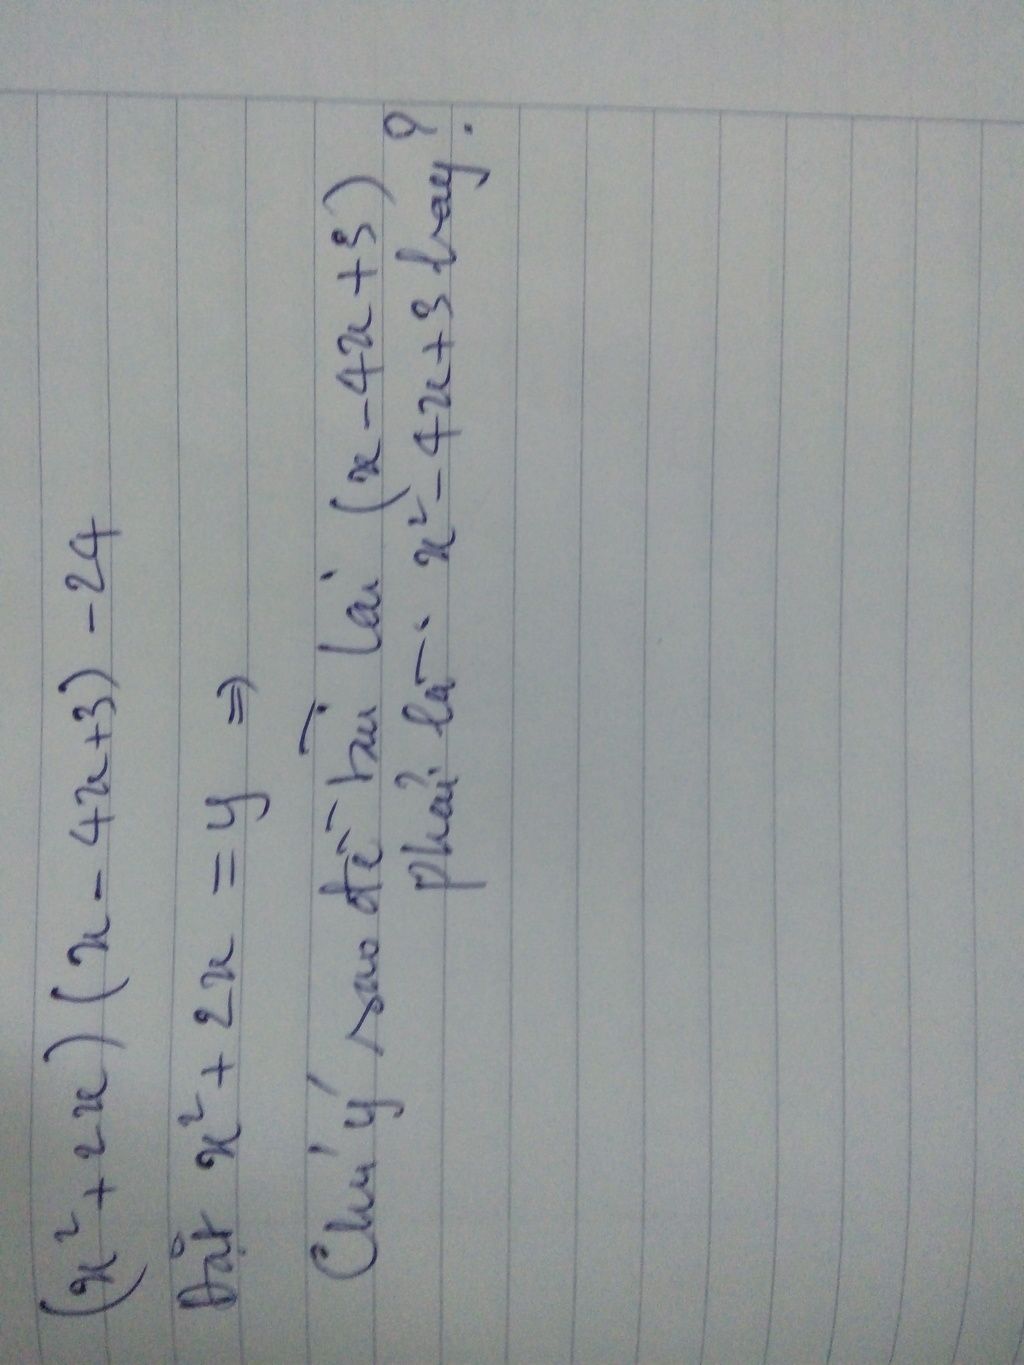 (x² + 2x)(x - 4x+3) - 24
Đặt x² + 2x = y ⇒
Chú ý sao đề bài lại (x - 4x +3)
phải là x² - 4x + 3 hay?